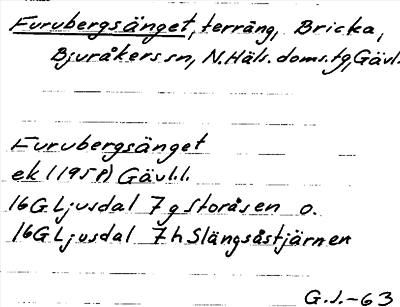 Furubergsänget, terräng, Bricka,
Bjuråkers sn, N. Häls. doms. tg, Gävl.
Furubergsänget
ek (195A) Gävl.l.
16G Ljusdal 7g Storåsen o.
16G Ljusdal 7h Slängsåstjärnen
G.J.-63